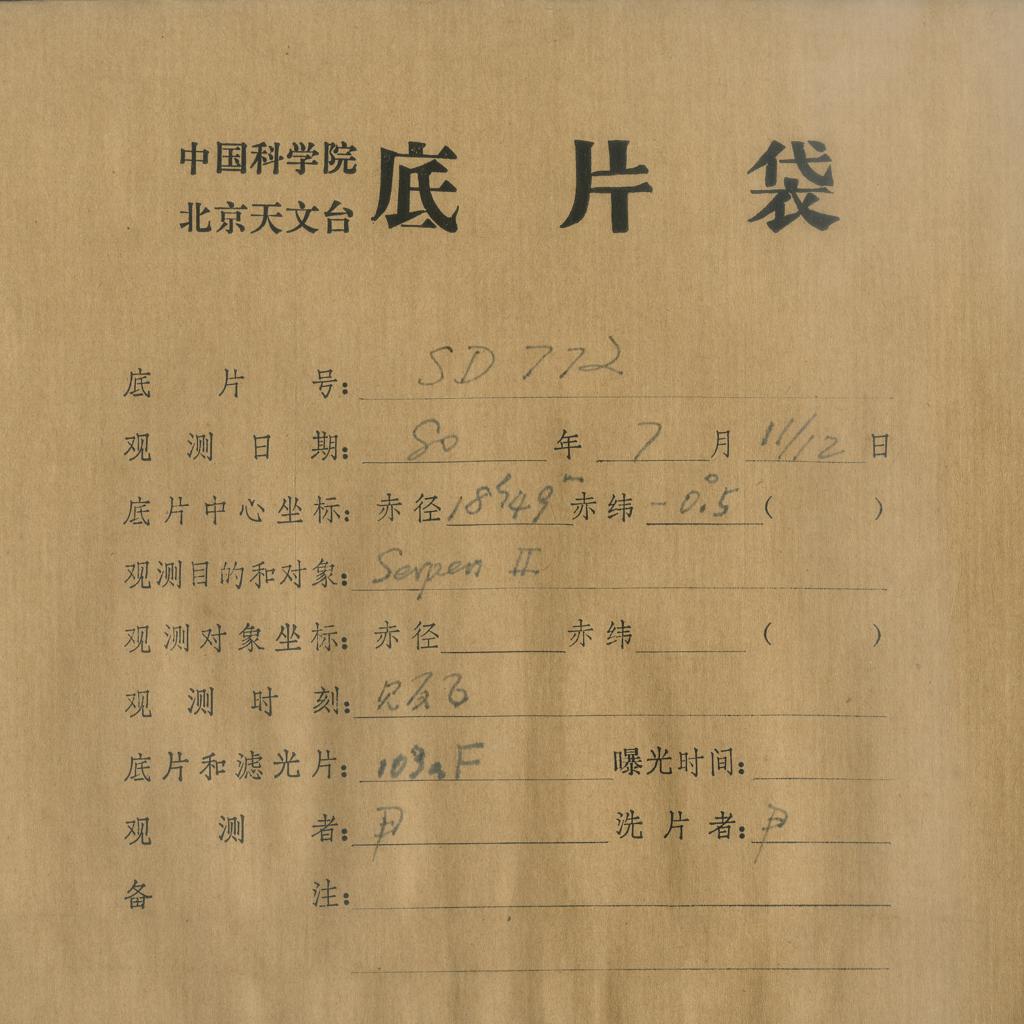 中国科学院
北京天文台
底片袋
底片号: SD 772
观测日期: 80 年 7 月 11/12 日
底片中心坐标: 赤径 18ʰ49ᵐ 赤纬 -0°.5 ( )
观测目的和对象: Serpen II
观测对象坐标: 赤径 赤纬 ( )
观测时刻: 见反面
底片和滤光片: 103aF 曝光时间:
观测者: 尹 洗片者: 尹
备注: